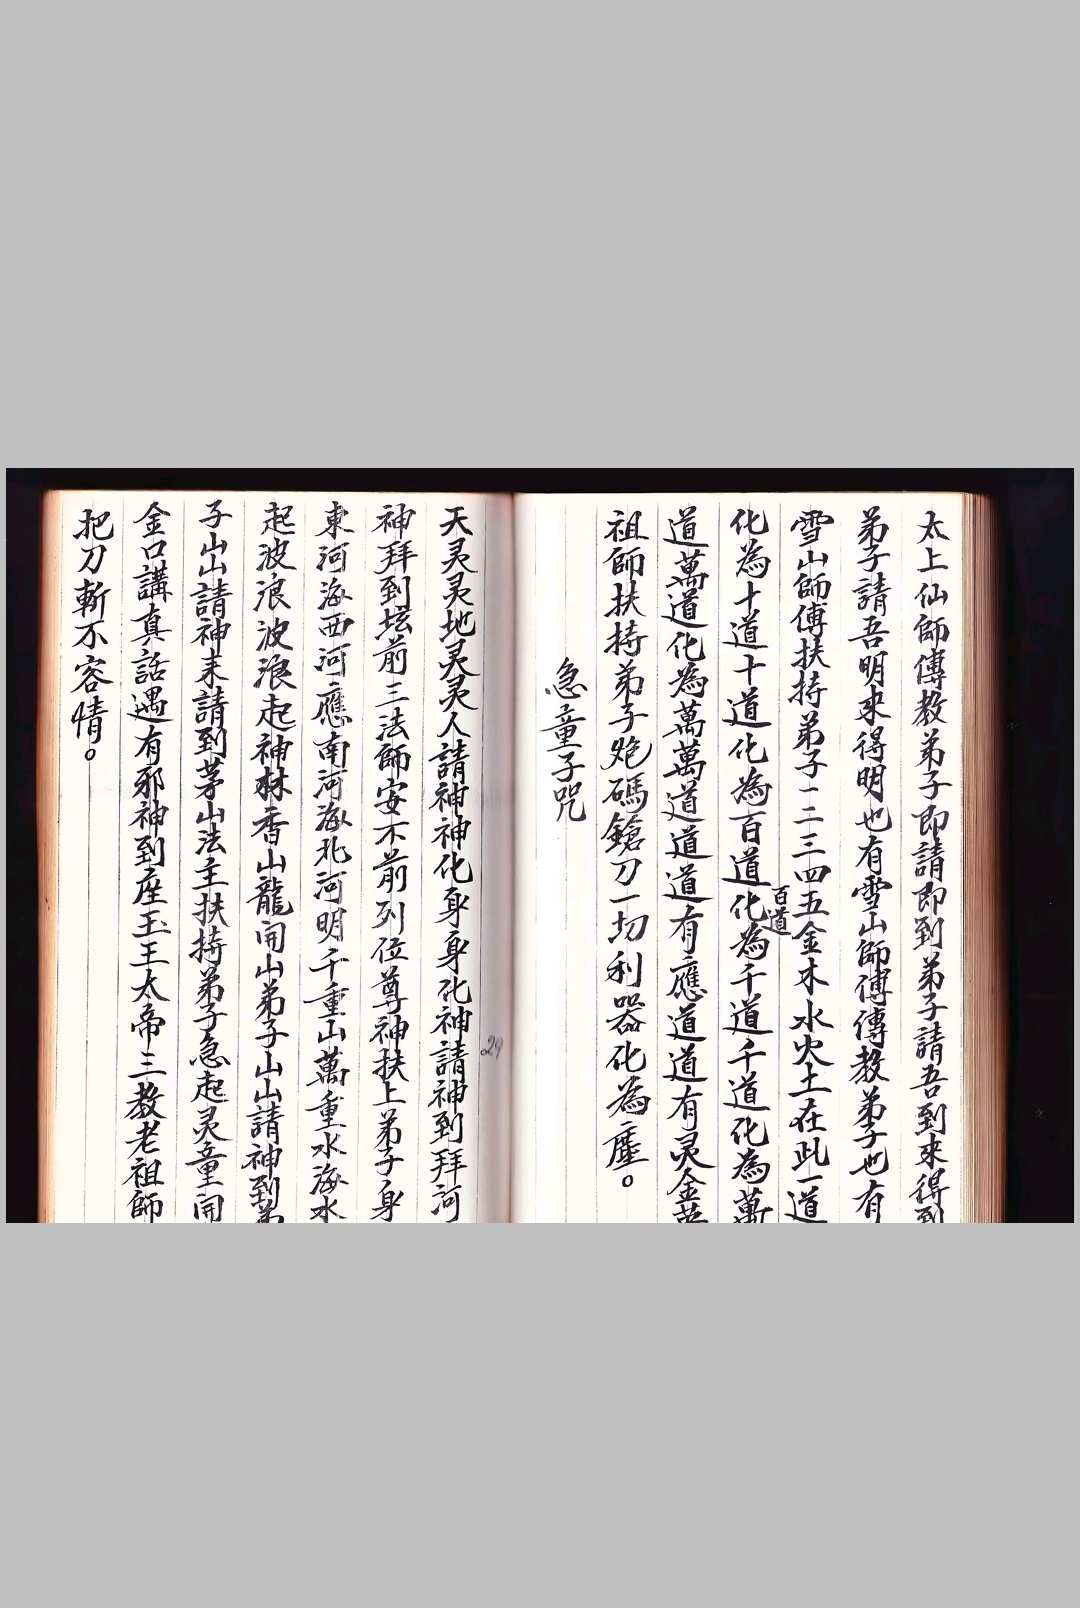 太上仙師傅教弟子即請即到弟子請吾到來得到
弟子請吾明來得明也有雪山師傅傳教弟子也有
雪山師傅扶持弟子一二三四五金木水火土在此一道
化為十道十道化為百道百道化為千道千道化為萬
道萬道化為萬萬道道道有應道道有灵金英
祖師扶持弟子炮碼鎗刀一切利器化為塵。
急童子咒
天灵灵地灵灵人請神神化身身化神請神到拜河
神拜到坛前三法師安不前列位尊神扶上弟子身
東河海西河應南河海北河明千重山萬重水海水
起波浪波浪起神林香山龍開山弟子山山請神到弟
子山山請神來請到茅山法主扶持弟子急起灵童開
金口講真話遇有邪神到座玉王太帝三教老祖師
把刀斬不容情。
29